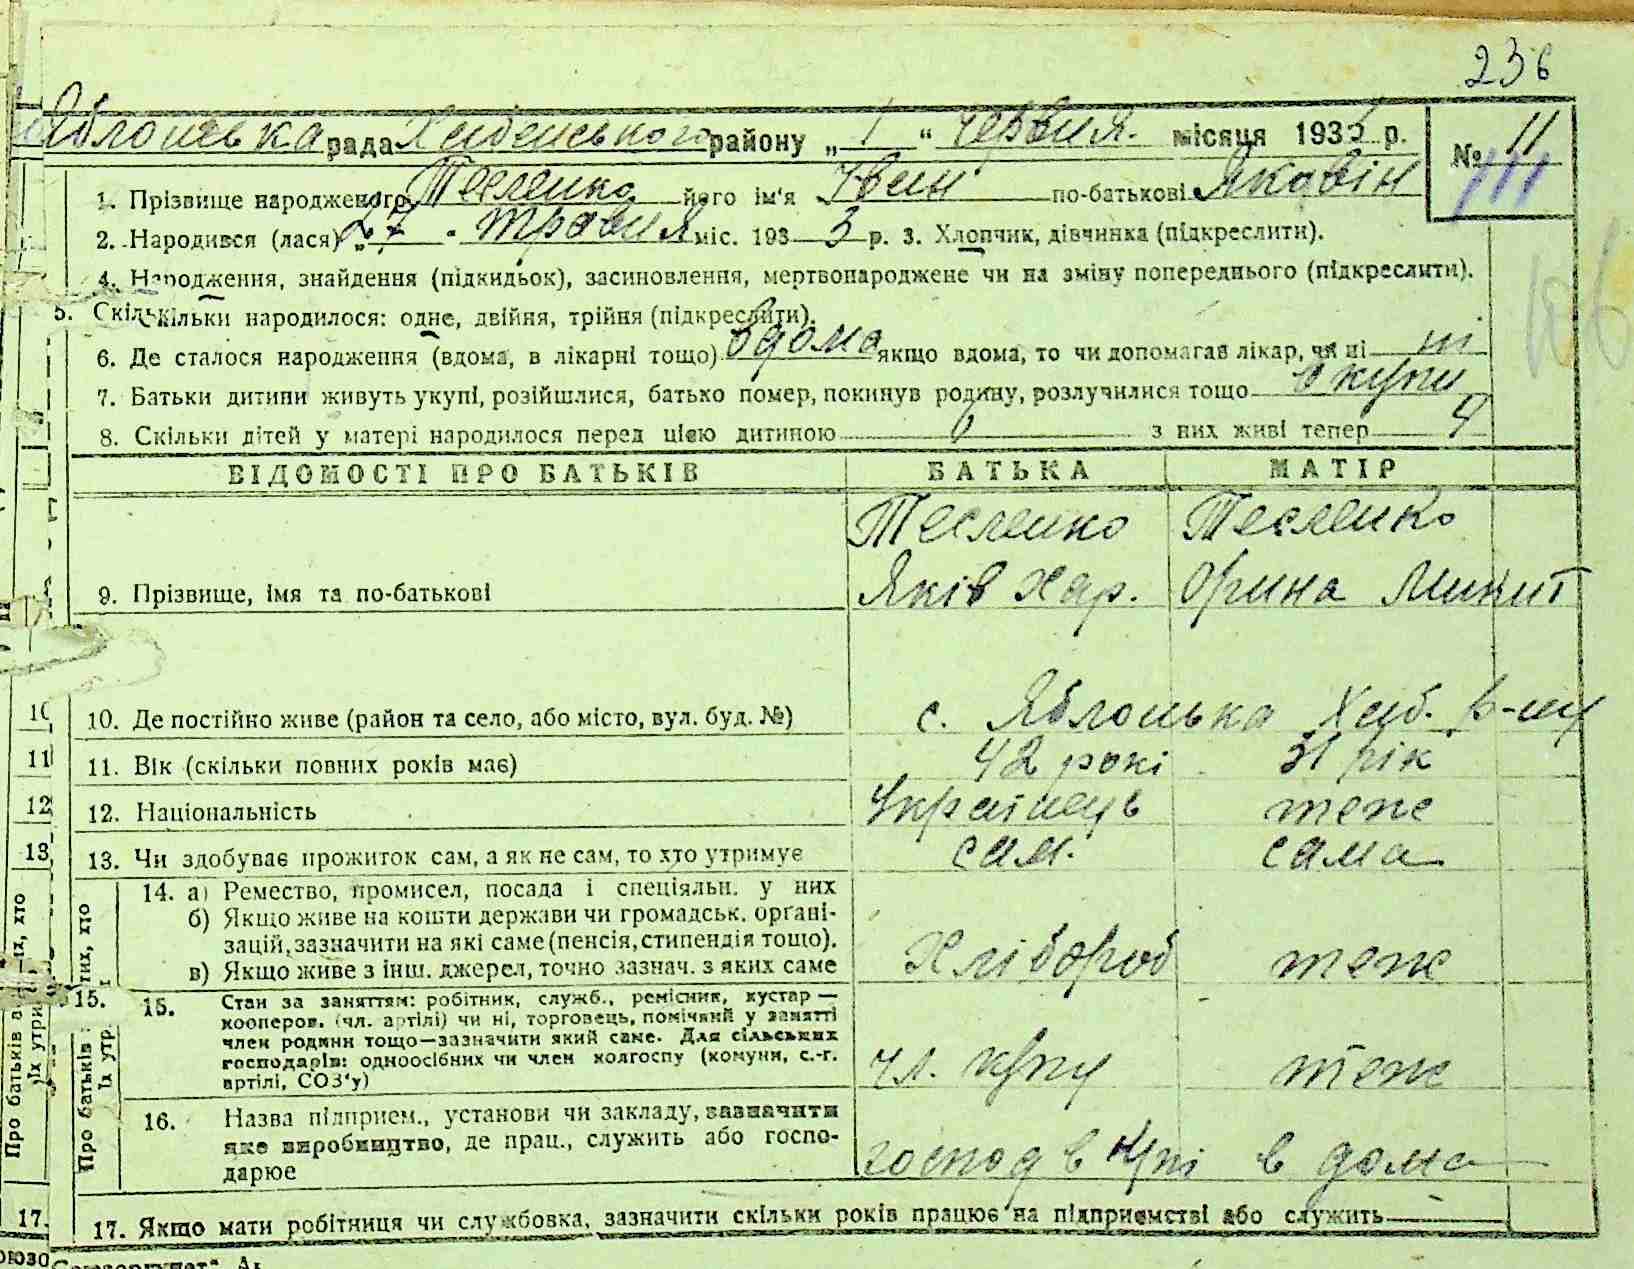 236
Яблонська рада Хабенського району „ 1 “ червня. місяця 1933 р. № 11
111
1. Прізвище народженого Тесленко його ім'я Іван по-батькові Яковін
2. Народився (лася) „ 27 “ травня міс. 193 3 р. 3. Хлопчик, дівчинка (підкреслити).
4. Народження, знайдення (підкидьок), засиновлення, мертвонароджене чи на зміну попереднього (підкреслити).
5. Скільки народилося: одне, двійня, трійня (підкреслити).
6. Де сталося народження (вдома, в лікарні тощо) вдома якщо вдома, то чи допомагав лікар, чи ні ні
7. Батьки дитини живуть укупі, розійшлися, батько помер, покинув родину, розлучилися тощо вкупи
8. Скільки дітей у матері народилося перед цією дитиною 6 з них живі тепер 4
ВІДОМОСТІ ПРО БАТЬКІВ БАТЬКА МАТІР
Тесленко Тесленко
9. Прізвище, імя та по-батькові Яків Хар. Орина Микит
10. Де постійно живе (район та село, або місто, вул. буд. №) с. Яблонька Хаб. р-ну
11. Вік (скільки повних років має) 42 рокі 31 рік
12. Національність Українець теж
13. Чи здобуває прожиток сам, а як не сам, то хто утримує сам. сама
14. а) Ремество, промисел, посада і спеціяльн. у них
б) Якщо живе на кошти держави чи громадськ. органі-
зацій, зазначити на які саме (пенсія, стипендія тощо).
в) Якщо живе з інш. джерел, точно зазнач. з яких саме Хлібороб теж
15. Стан за заняттям: робітник, служб., ремісник, кустар —
кооперов. (чл. артілі) чи ні, торговець, помічний у занятті
член родини тощо—зазначити який саме. Для сільських
господарів: одноосібних чи член колгоспу (комуни, с.-г.
артілі, СОЗ'у) чл. кгпу теж
16. Назва підприєм., установи чи закладу, зазначити
яке виробництво, де прац., служить або госпо-
дарює господ в кгпі в дома
17. Якщо мати робітниця чи службовка, зазначити скільки років працює на підприємстві або служить